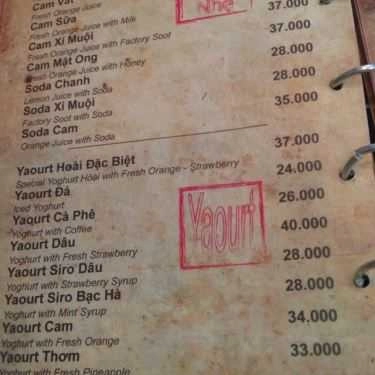 Cam Vắt
Fresh Orange Juice
Cam Sữa
Fresh Orange Juice with Milk
Cam Xí Muội
Fresh Orange Juice with Factory Soot
Cam Mật Ong
Fresh Orange Juice with Honey
Soda Chanh
Lemon Juice with Soda
Soda Xí Muội
Factory Soot with Soda
Soda Cam
Orange Juice with Soda
Nhẹ
37.000
37.000
28.000
28.000
35.000
Yaourt Hoài Đặc Biệt 37.000
Special Yoghurt Hoài with Fresh Orange - Strawberry
Yaourt Đá 24.000
Iced Yoghurt
Yaourt Cà Phê 26.000
Yoghurt with Coffee
Yaourt Dâu 40.000
Yoghurt with Fresh Strawberry
Yaourt Siro Dâu 28.000
Yoghurt with Strawberry Syrup
Yaourt Siro Bạc Hà 28.000
Yoghurt with Mint Syrup
Yaourt Cam 34.000
Yoghurt with Fresh Orange
Yaourt Thơm 33.000
Yoghurt with Fresh Pineapple
Yaourt